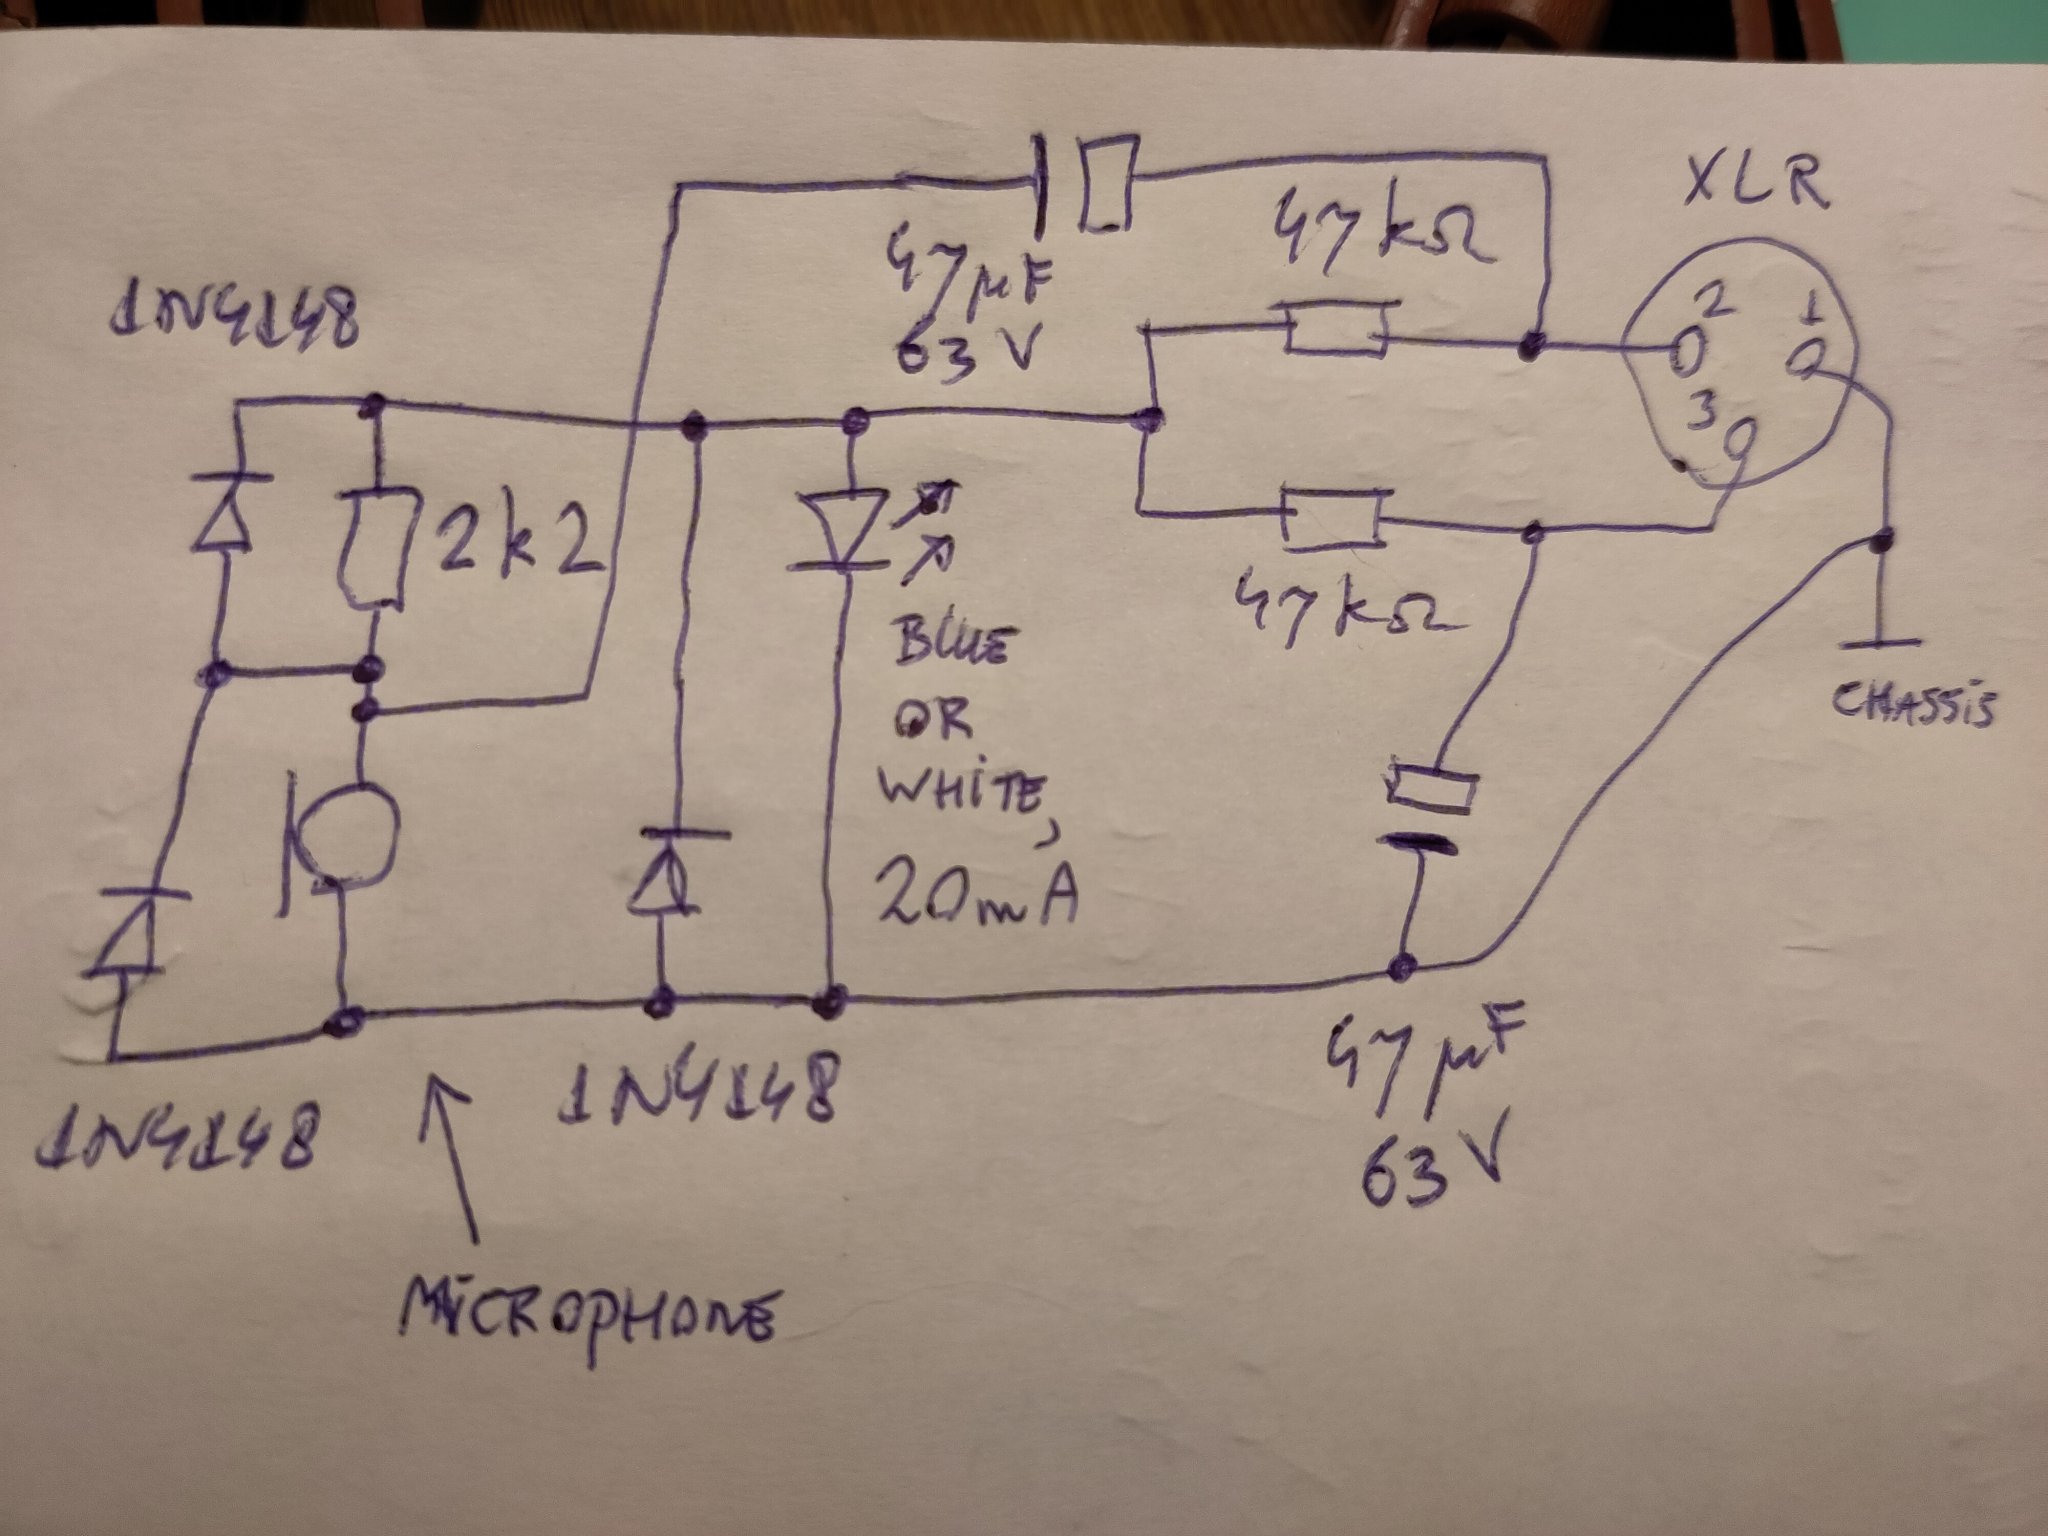 XLR
47kΩ
2
1
47μF
63V
1N4148
3
2k2
47kΩ
BLUE
OR
WHiTE,
20mA
CHASSiS
47μF
63V
1N4148
1N4148
MiCROPHONE